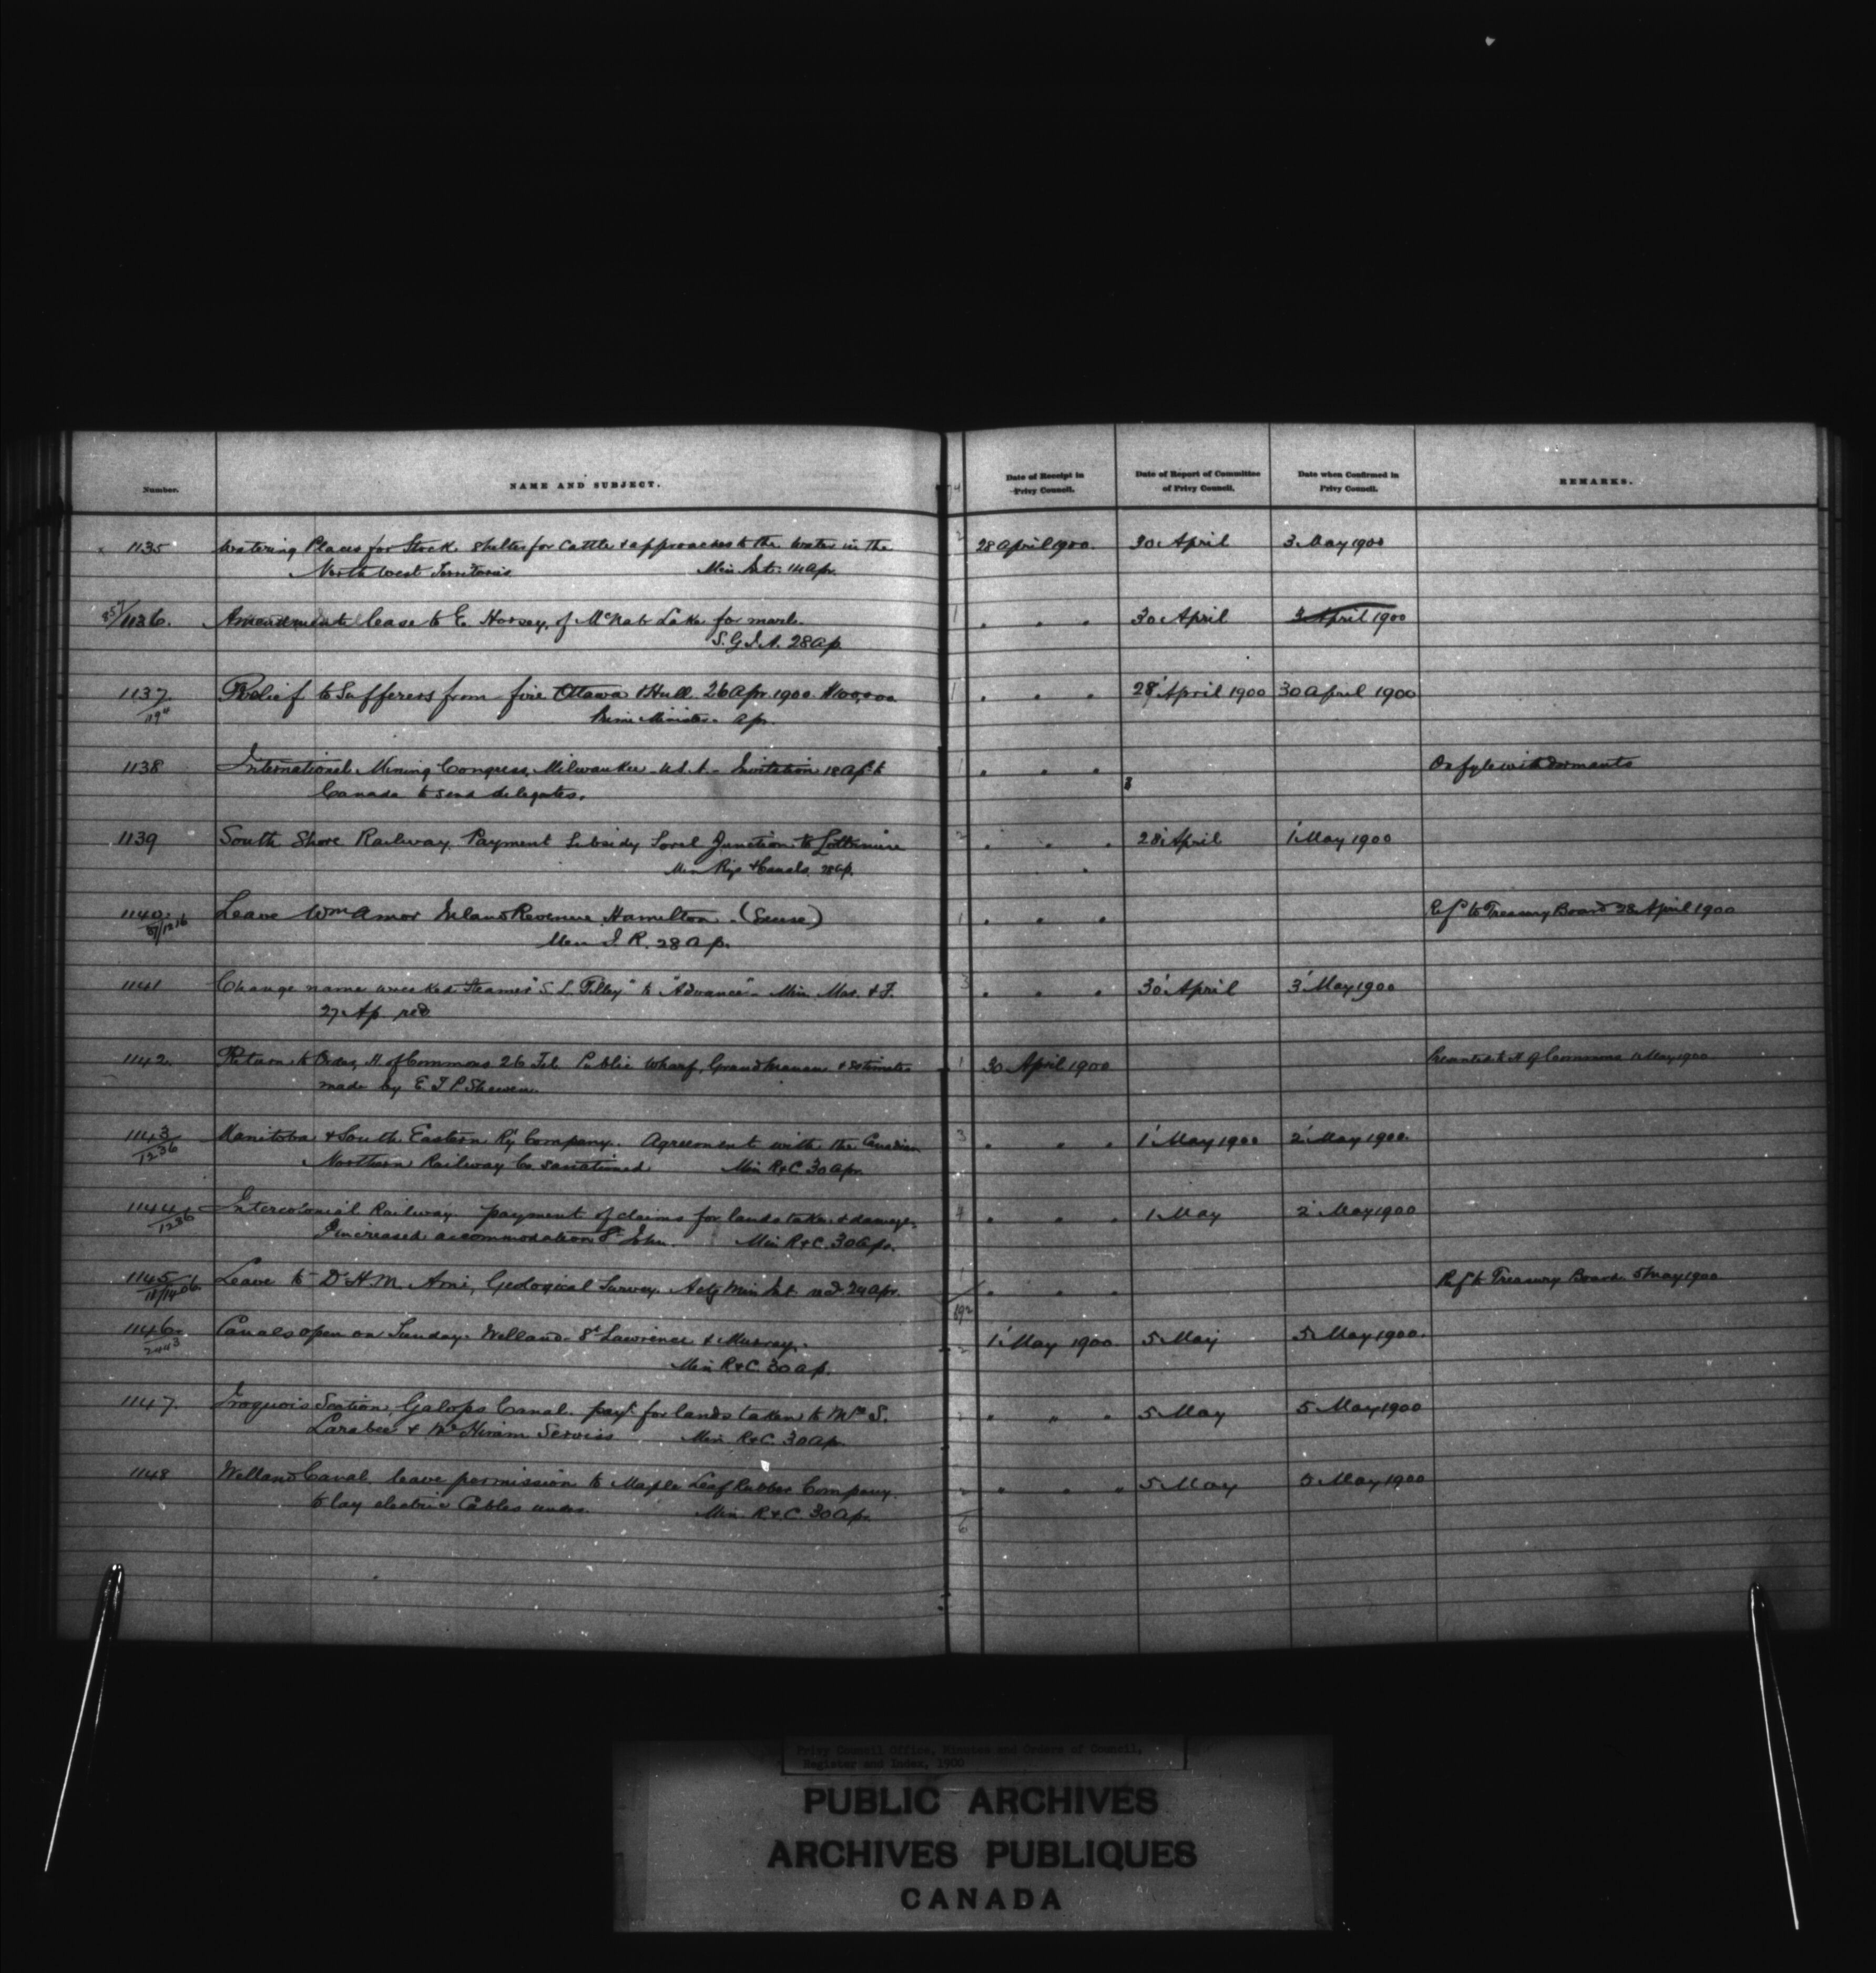 Number. NAME AND SUBJECT. Date of Receipt in Privy Council. Date of Report of Committee of Privy Council. Date when Confirmed in Privy Council. REMARKS.
1135 Watering Places for Stock. Shelter for Cattle & approaches to the water in the 28 April 1900. 30 April 3 May 1900
North West Territories Min Int. 14 Ap.
1136. Amendment lease to E. Horsey, of McNab Lake for marl. " " " 30 April 3 April 1900
S.G.I.A. 28 Ap
1137 Relief to Sufferers from fire Ottawa & Hull. 26 Apr. 1900. $100,000 " " " 28 April 1900 30 April 1900
Prime Minister Ap.
1138 International Mining Congress, Milwaukee U.S.A. Invitation 18 Ap to " " " On fyle with dormants
Canada to send delegates.
1139 South Shore Railway. Payment Subsidy Sorel Junction to Lotbiniere " " " 28 April 1 May 1900
Min Rys & Canals. 28 Ap.
1140. Leave Wm Amor Inland Revenue Hamilton. (Excise) " " " Ref to Treasury Board 28 April 1900
Min I.R. 28 Ap.
1141 Change name wrecked Steamer "S. L. Tilley" to "Advance" - Min Mar. & F. " " " 30 April 3 May 1900
27 Ap. recd
1142. Return to Order, H. of Commons 26 Feb. Public Wharf, Grand Manan & estimates 30 April 1900 Presented to H of Commons 11 May 1900
made by E. T. P. Shewen.
1143 Manitoba & South Eastern Ry Company. Agreement with the Canadian " " " 1 May 1900 2 May 1900.
1236 Northern Railway Co sanctioned Min R & C 30 Apr.
1144 Intercolonial Railway. payment of claims for lands taken & damage. " " " 1 May 2 May 1900
1236 Increased accommodation St John. Min R & C. 30 Ap.
1145 Leave to Dr H. M. Ami, Geological Survey. Actg Min Int recd 24 Apr. " " " Ref to Treasury Board 5 May 1900
1146. Canals open on Sunday. Welland - St Lawrence & Murray. 1 May 1900. 5 May 5 May 1900.
2443 Min R & C. 30 Ap.
1147. Iroquois Section, Galops Canal. payt. for lands taken to Mrs S. " " " 5 May 5 May 1900
Larabee & Mr Hiram Serviss Min R & C. 30 Ap
1148 Welland Canal. leave permission to Maple Leaf Rubber Company. " " " 5 May 5 May 1900
to lay electric Cables under. Min R & C 30 Ap.
Privy Council Office, Minutes and Orders of Council,
Register and Index, 1900
PUBLIC ARCHIVES
ARCHIVES PUBLIQUES
CANADA